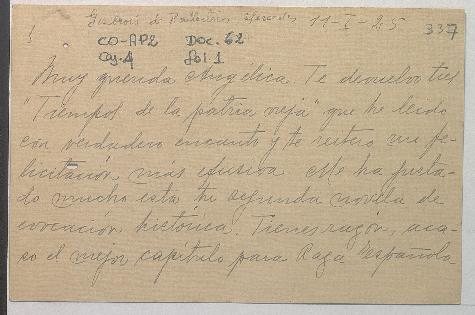 11-I-25
337
CO-AP2 Doc. 62
Caj. 4 Fol 1
Muy querida Angélica. Te devuelvo tus
"Tiempos de la patria vieja" que he leido
con verdadero encanto y te reitero mi fe-
licitación más efusiva. Me ha gusta-
do mucho esta tu segunda novela de
evocación histórica. Tienes razón, aca-
so el mejor capítulo para Raza Española